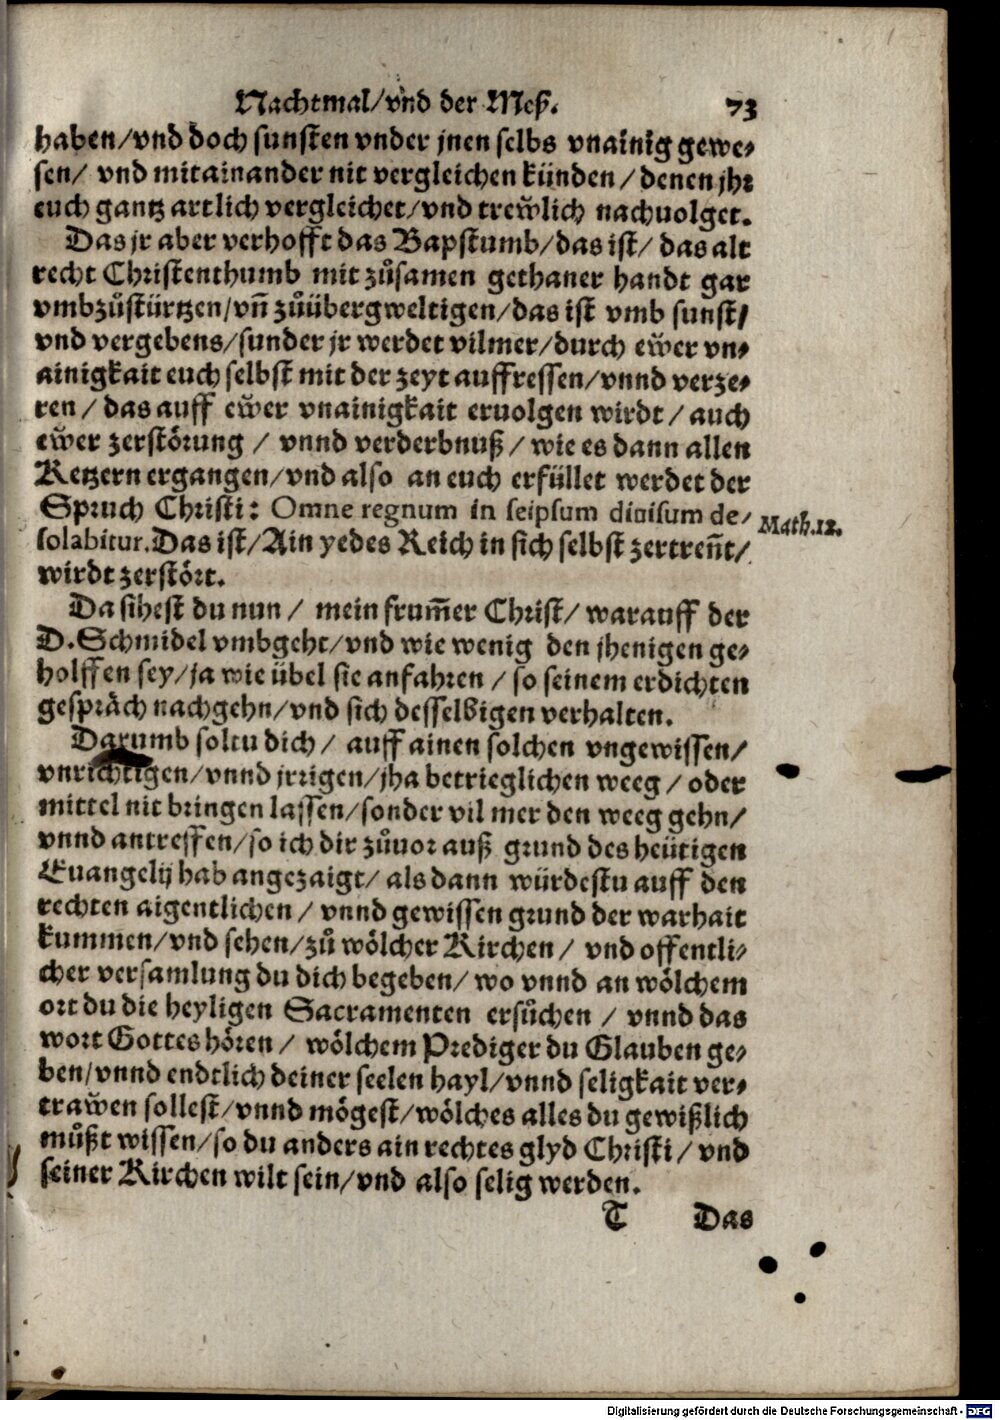 Nachtmal/vnd der Meß. 73
haben/vnd doch sunsten vnder jnen selbs vnainig gewe⸗
sen/ vnd mitainander nit vergleichen künden/denen jhr
euch gantz artlich vergleichet/vnd trew̃lich nachuolget.
Das jr aber verhofft das Bapstumb/das ist/ das alt
recht Christenthumb mit zůsamen gethaner handt gar
vmbzůstürtzen/vñ zůübergweltigen/das ist vmb sunst/
vnd vergebens/sunder jr werdet vilmer/durch ew̃er vn⸗
ainigkait euch selbst mit der zeyt auffressen/vnnd verze⸗
ren/das auff ew̃er vnainigkait eruolgen wirdt/auch
ew̃er zerstörung/vnnd verderbnuß/wie es dann allen
Ketzern ergangen/vnd also an euch erfüllet werdet der
Spruch Christi: Omne regnum in seipsum diuisum de⸗
solabitur. Das ist/Ain yedes Reich in sich selbst zertreñt/
Math.12.
wirdt zerstört.
Da sihest du nun/ mein frum̃er Christ/warauff der
D. Schmidel vmbgeht/vnd wie wenig den jhenigen ge⸗
holffen sey/ja wie übel sie anfahren/so seinem erdichten
gespräch nachgehn/vnd sich desselbigen verhalten.
Darumb soltu dich/ auff ainen solchen vngewissen/
vnrichtigen/vnnd jrrigen/jha betrieglichen weeg/oder
mittel nit bringen lassen/sonder vil mer den weeg gehn/
vnnd antreffen/so ich dir zůuor auß grund des heütigen
Euangelij hab angezaigt/als dann würdestu auff den
rechten aigentlichen/vnnd gewissen grund der warhait
kummen/vnd sehen/zů wölcher Kirchen/ vnd offentli⸗
cher versamlung du dich begeben/wo vnnd an wölchem
ort du die heyligen Sacramenten ersůchen/vnnd das
wort Gottes hören/ wölchem Prediger du Glauben ge⸗
ben/vnnd endtlich deiner seelen hayl/vnnd seligkait ver⸗
traw̃en sollest/vnnd mögest/wölches alles du gewißlich
můßt wissen/so du anders ain rechtes glyd Christi/vnd
seiner Kirchen wilt sein/vnd also selig werden.
T Das
Digitalisierung gefördert durch die Deutsche Forschungsgemeinschaft - DFG